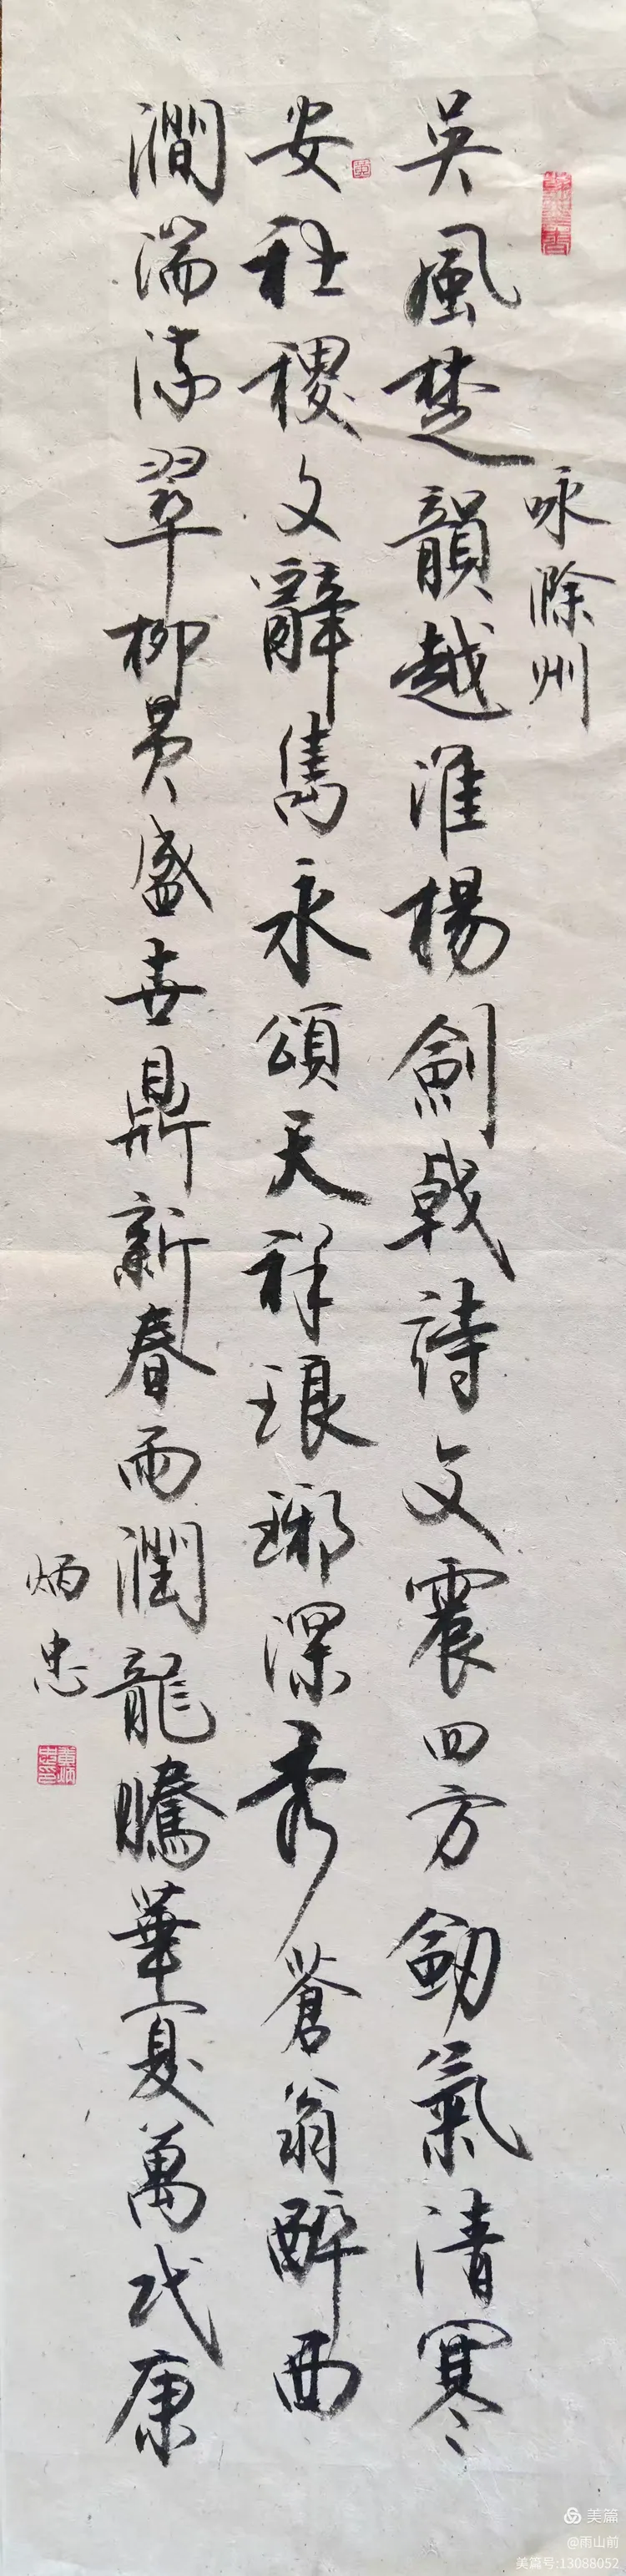 咏滁州
吳風楚韻越淮楊劍戟詩文震四方劒氣清寒
安社稷文辭雋永頌天祥琅琊深秀蒼翁醉西
澗湍流翠柳黃盛世鼎新春雨潤龍騰華夏萬代康
炳忠
黄炳忠印
美篇
@雨山前
美篇号:13088052